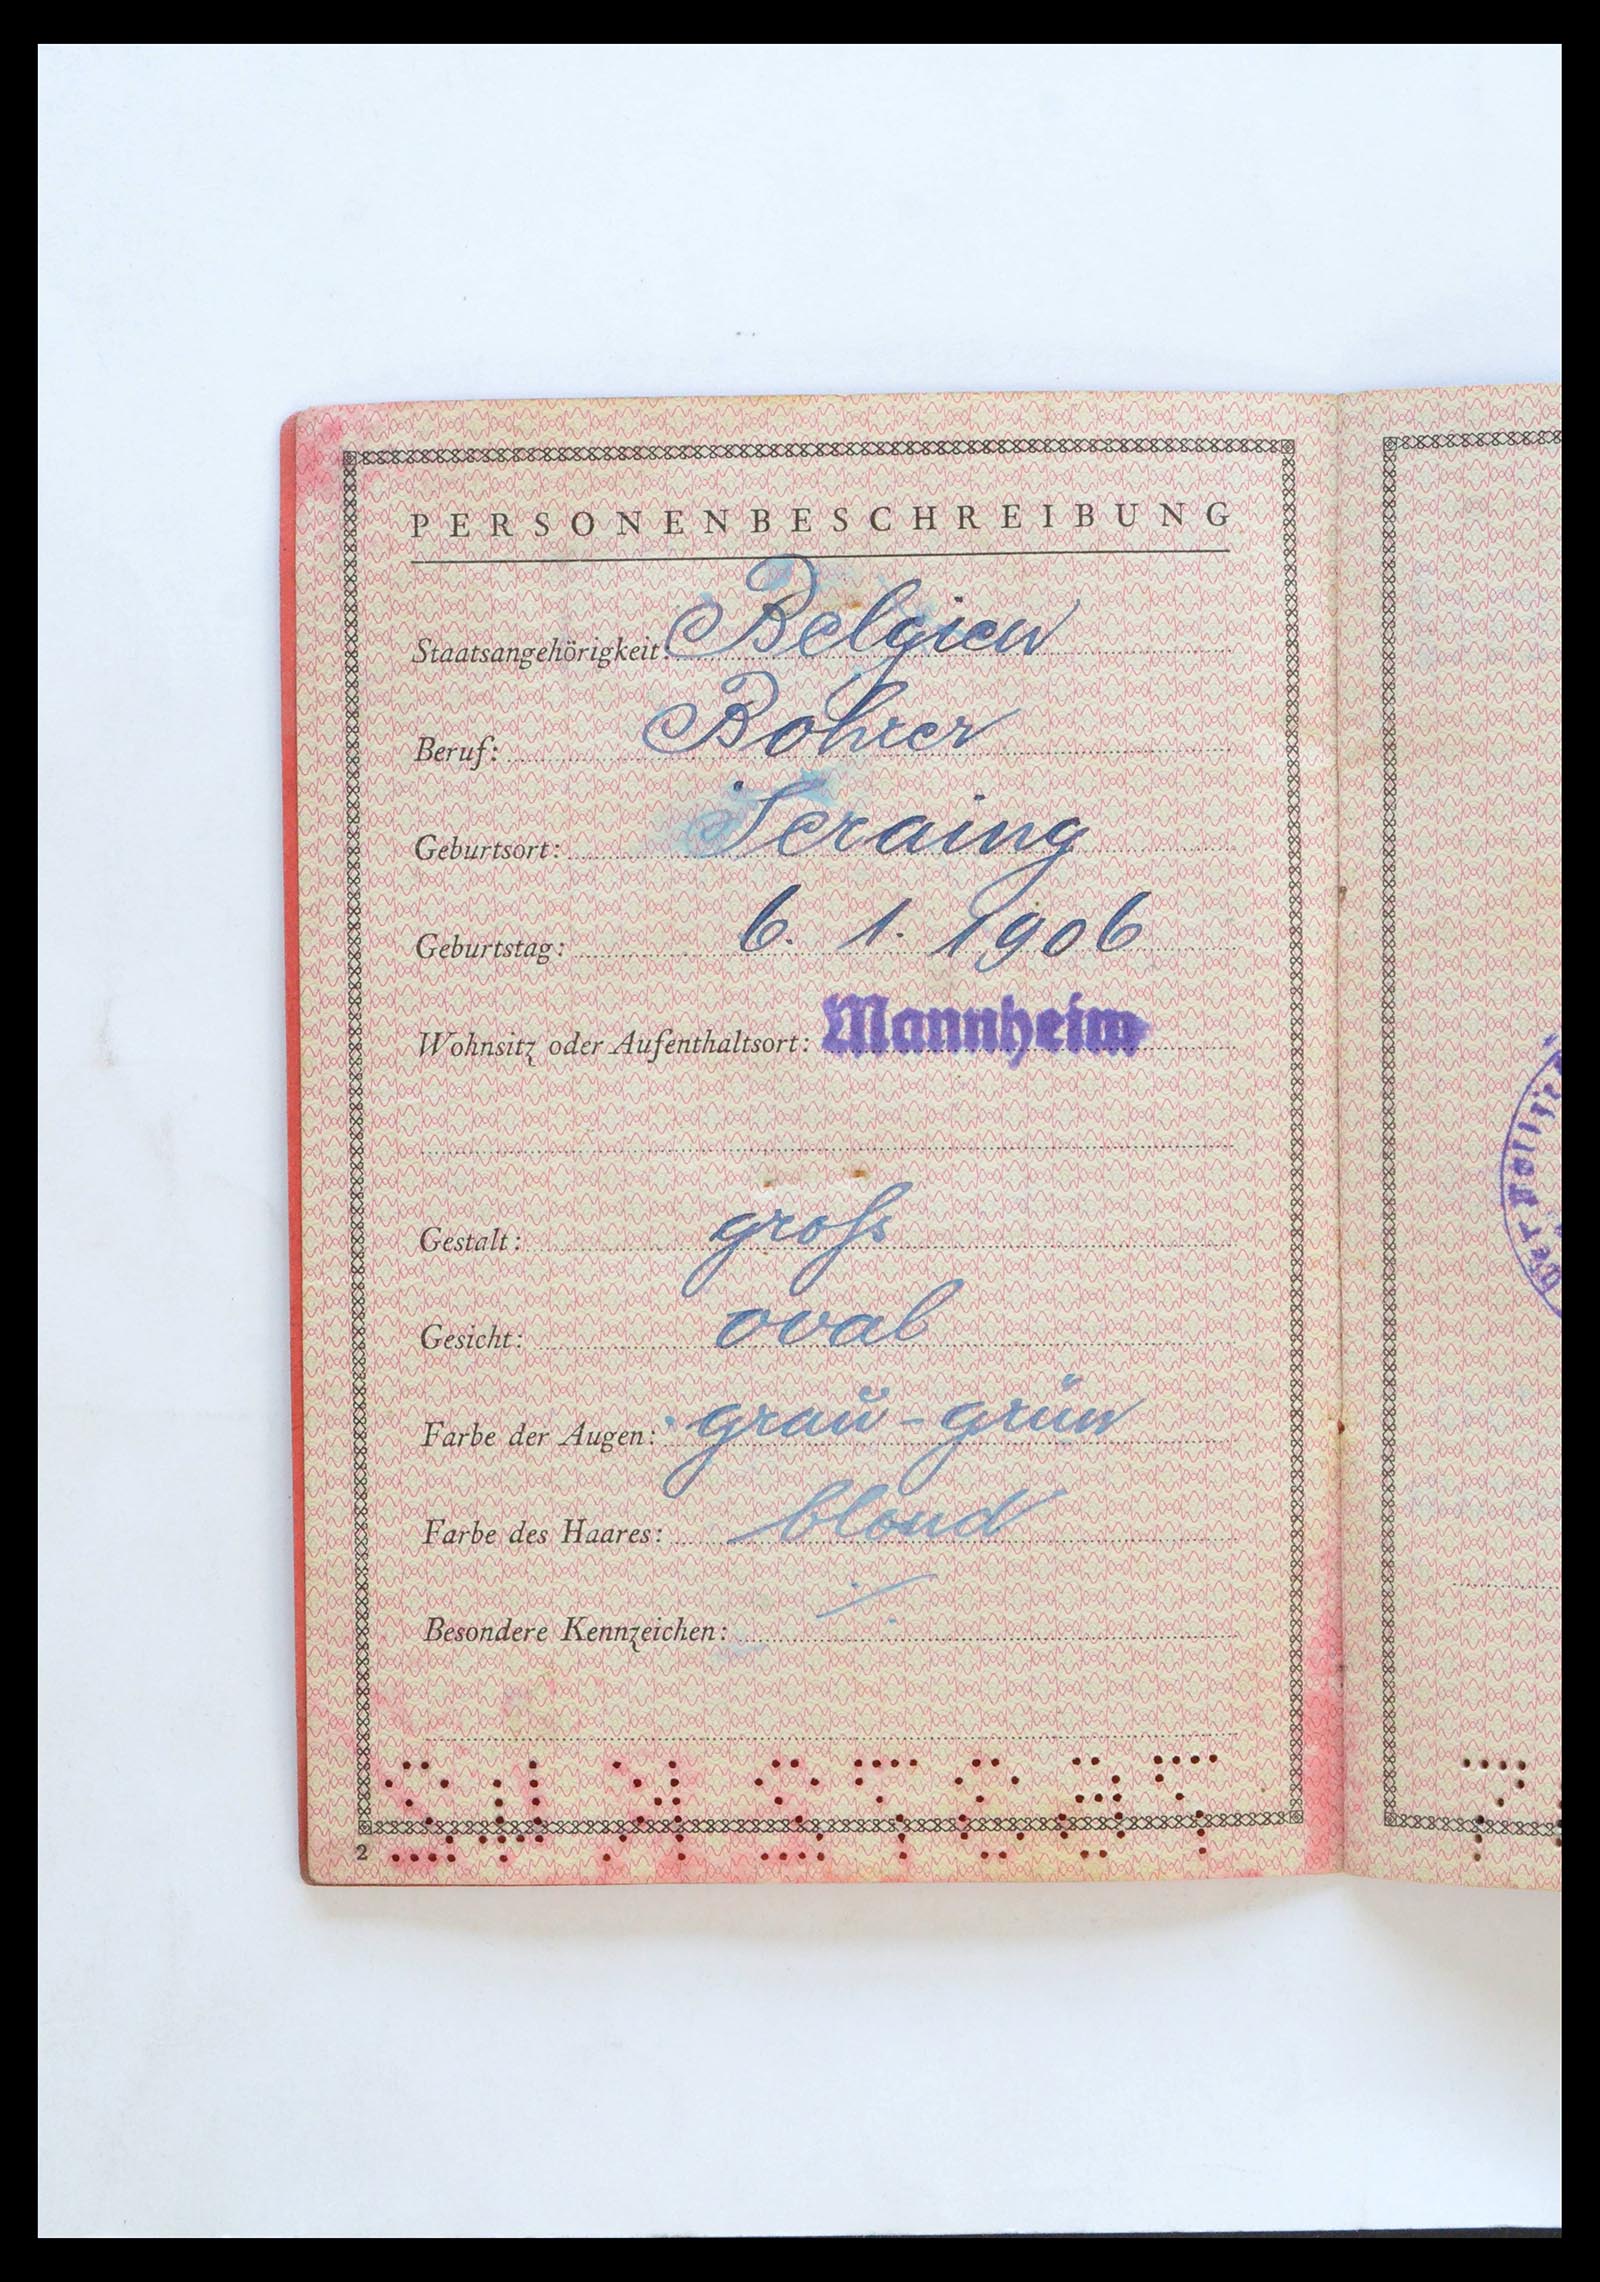 PERSONENBESCHREIBUNG
Staatsangehörigkeit: Belgien
Beruf: Bohrer
Geburtsort: Seraing
Geburtstag: 6. 1. 1906
Wohnsitz oder Aufenthaltsort: Mannheim
Gestalt: groß
Gesicht: oval
Farbe der Augen: grau-grün
Farbe des Haares: blond
Besondere Kennzeichen: ./.
2
Der Polizei